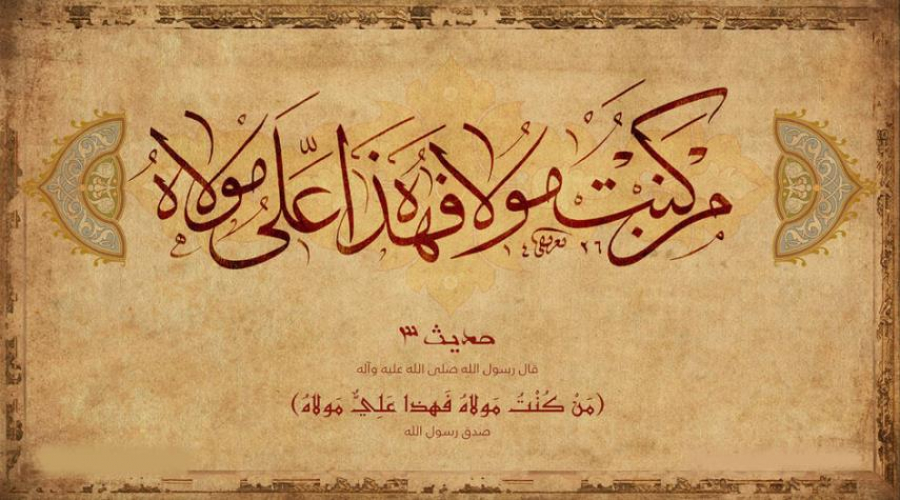 من كنت مولاه فهذا علي مولاه
حديث ٣
قال رسول الله صلى الله عليه وآله
(مَنْ كُنْتُ مَولاهُ فَهذا عَلِيٌّ مَولاهُ)
صدق رسول الله